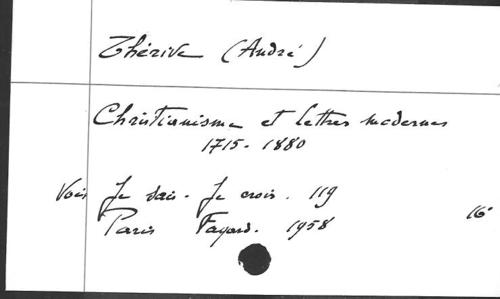 Thérive (André)
Christianisme et lettres modernes
1715-1880
Voir Je sais - Je crois. 119
Paris Fayard. 1958 16°